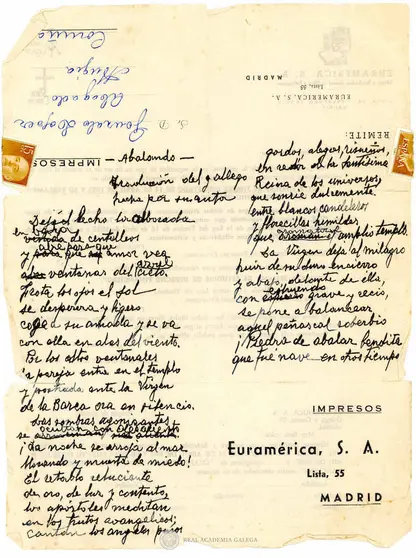 Coruña
Muxía
Abogado
Gonzalo López
S. D.
MADRID
Lista, 55
EURAMERICA, S. A.
REMITE:
IMPRESOS
— Abalando —
Traducción del gallego
hecha por su autor
Dejó el lecho la alborada
en
vestida de centelleos
y para que amor vea
azul
ventanas del cielo.
Frota los ojos el sol
se despereza y ligero
coge a su amada y se va
con ella en alas del viento.
Por los altos ventanales
la pareja entra en el templo
y postrada ante la Virgen
de la Barca ora en silencio.
Dos sombras agonizantes
se
¡da noche se arroja al mar
llorando y muerta de miedo!
El retablo reluciente
de oro, de luz y contento,
los apóstoles meditan
en los frutos evangélicos;
cantan los ángeles puros
gordos, alegres, risueños,
en redor de la Santísima
Reina de los universos
que sonríe dulcemente,
entre blancos candeleros
y florecillas humildes
que el amplio templo.
La Virgen deja al milagro
huir de mi duro encierro
y abajo, delante de ella,
con grave y recio,
se pone a balancear
aquel peñascal soberbio
¡Piedra de abalar, bendita
que fué nave en otros tiempo
IMPRESOS
Euramérica, S. A.
Lista, 55
MADRID
REAL ACADEMIA GALEGA